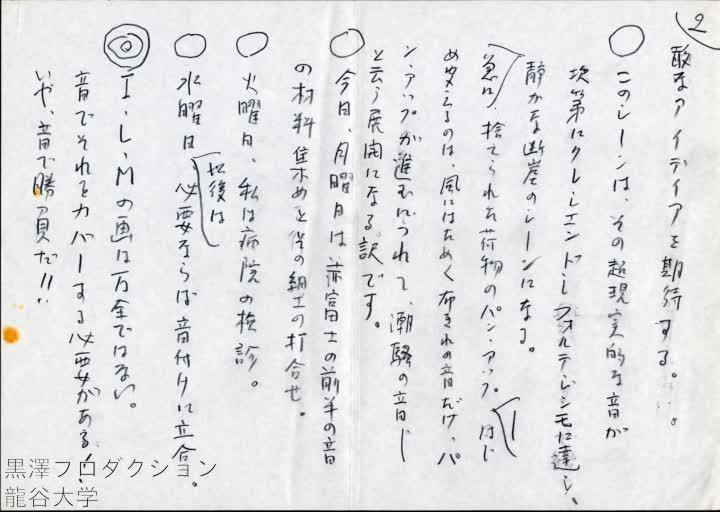 2
敢なアイデイアを期待する。
○ このシーンは、その超現実的な音が
次第にクレシエンドしフォルテシモに達し、
静かな断崖のシーンになる。
急に、捨てられた荷物のパン・アップ はじ
めゆえるのは、風にはためく布きれの音だけ、パ
ン・アップが進むにつれて、潮騒の音し
と云う展開になる訳です。
○ 今日、月曜日は赤富士の前半の音
の材料集めと後の細土の打合せ。
○ 火曜日、私は病院の検診。
○ 水曜日 以後は
必要ならば音付けに立合う。
◎ I・L・Mの画は万全ではない。
音でそれをカバーする必要がある!
いや、音で勝負だ!!
黒澤プロダクション
龍谷大学